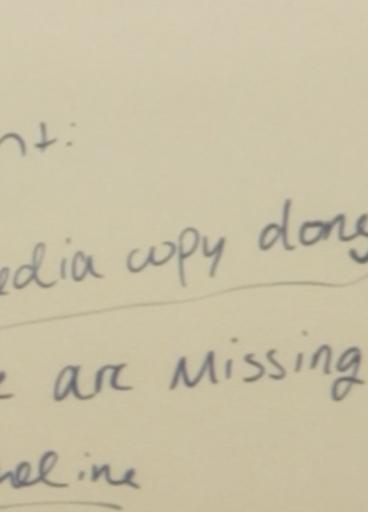 nt:
edia copy dong
e are Missing
neline